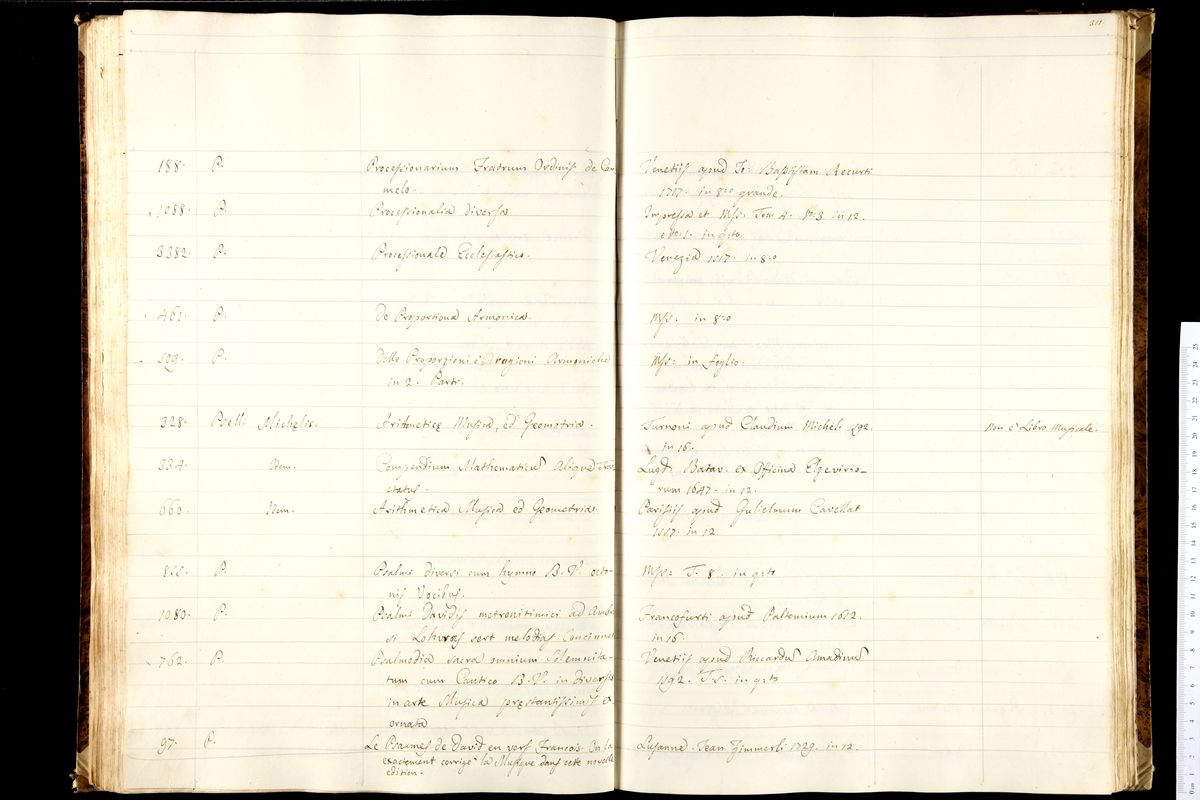 311.
188. P. Processionarium Fratrum Ordinis de Car Venetiis apud Jo: Baptistam Recurti
melo. 1717. in 8:o grande.
1088. P. Processionalia diversa Impressa et Mss: Tom 4. N:o 3 in 12.
et in q:to
3382. P. Processionale Ecclesiastico. Venezia in 8:o
461. P. De Proportione Armonica. Mss: in 8:o
509. P. Delle Proporzioni e ragioni Armoniche Mss: in foglio.
in 2. Parti.
328. Psell. Michelis. Aritmetice Musica, ed Geometria. Turnoni apud Claudium Michel. 1592. Non è Libro Musicale.
in 16.
334. Item. Compendium Mathematicum Aliique Tra: Lugd: Batav: ex Officina Elzevirio-
ctatus. rum 1647. in 12.
660. Item. Arithmetica Musica ed Geometria Parisiis apud Gulielmum Cavellat
1557. in 12
855. P. Psalmi diversi cum hymno B. V. octo- Mss: T. 8. in q:to
nis Vocibus.
1080. P. Psalmi Davidis metroritimici ad Ambr Francofurti apud Paltenium 1612.
si sert melodias Concinnat in 16.
762. P. Psalmodia sacra omnium Solemnita- Venetiis apud Riccardum Amadinum
tum cum Cantico B. V. in diversis 1592. T. 5. in q:to
in arte Musica prestantissimis ex
ornata
97. P. Le Psaumes de David en vers Francois. On la Lusanne. Jean Zimmerli 1729. in 12.
exactement corrigé la Musique dans cete novelle
edition.